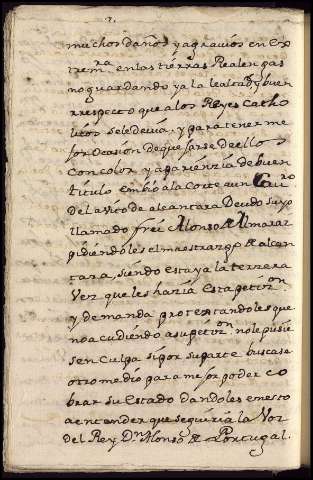 muchos daños y agravios en Ex
trem.ra en las tierras Realengas
no guardando ya la lealtad y buen
rrespecto que a los Reyes Catho
licos se le devia, y para tener me
jor ocasion de quejarse de ello
con color y aparienzia de buen
titulo embio a la Corte a un Cau.ro
del avito de alcantara Deudo suyo
llamado frei Alonso de Almaraz
pidiendoles el maestrazgo de alcan
tara, siendo esta ya la terzera
Vez que les hazia esta petiz.on
y demanda protextandoles que
no acudiendo a su petiz.on no le pusie
sen culpa si por su parte buscase
otro medio para mejor poder co
brar su Estado dandoles en esto
a entender que seguiria la Voz
del Rey D.n Alonso de Portugal.